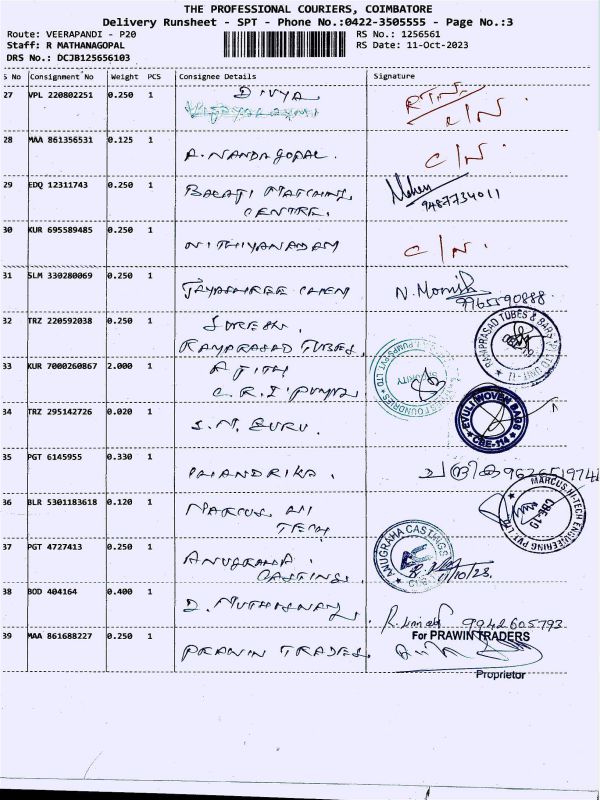 THE PROFESSIONAL COURIERS, COIMBATORE
Delivery Runsheet - SPT - Phone No.:0422-3505555 - Page No.:3
Route: VEERAPANDI - P20
RS No.: 1256561
Staff: R MATHANAGOPAL
RS Date: 11-Oct-2023
DRS No.: DCJB125656103
S No Consignment No Weight PCS Consignee Details Signature
27 VPL 220802251 0.250 1 DIVYA
C/N.
28 MAA 861356531 0.125 1 R. NANDAGOPAL. C/N.
29 EDQ 12311743 0.250 1 BALAJI MATCHING CENTRE. 9487734011
30 KUR 695589485 1 NITHIYANADAM C/N.
31 SLM 330280069 0.250 1 JAYASHREE CHEM N. Monish
9965590888
32 TRZ 220592038 0.250 1 SURESH.
RAMPRASAD TUBES. RAMPRASAD TUBES & BARS PVT LTD UNIT-II
33 KUR 7000260867 2.000 1 AJITH
C.R.I PUMPS FOUNDRIES PUMPS PVT LTD SECURITY
34 TRZ 295142726 0.020 1 S.N. GURU. WOVEN BAGS CBE-114
35 PGT 6145955 0.330 1 CHANDRIKA.
36 BLR 5301183618 0.120 1 MARCUS HI
TECH MARCUS HI-TECH ENGINEERING PVT LTD CBE-19
37 PGT 4727413 0.250 1 ANUGRAHA
CASTINGS. ANUGRAHA CASTINGS 11/10/23.
38 BOD 404164 0.400 1 9942605793
39 MAA 861688227 0.250 1 PRAWIN TRADES. For PRAWIN TRADERS
Proprietor